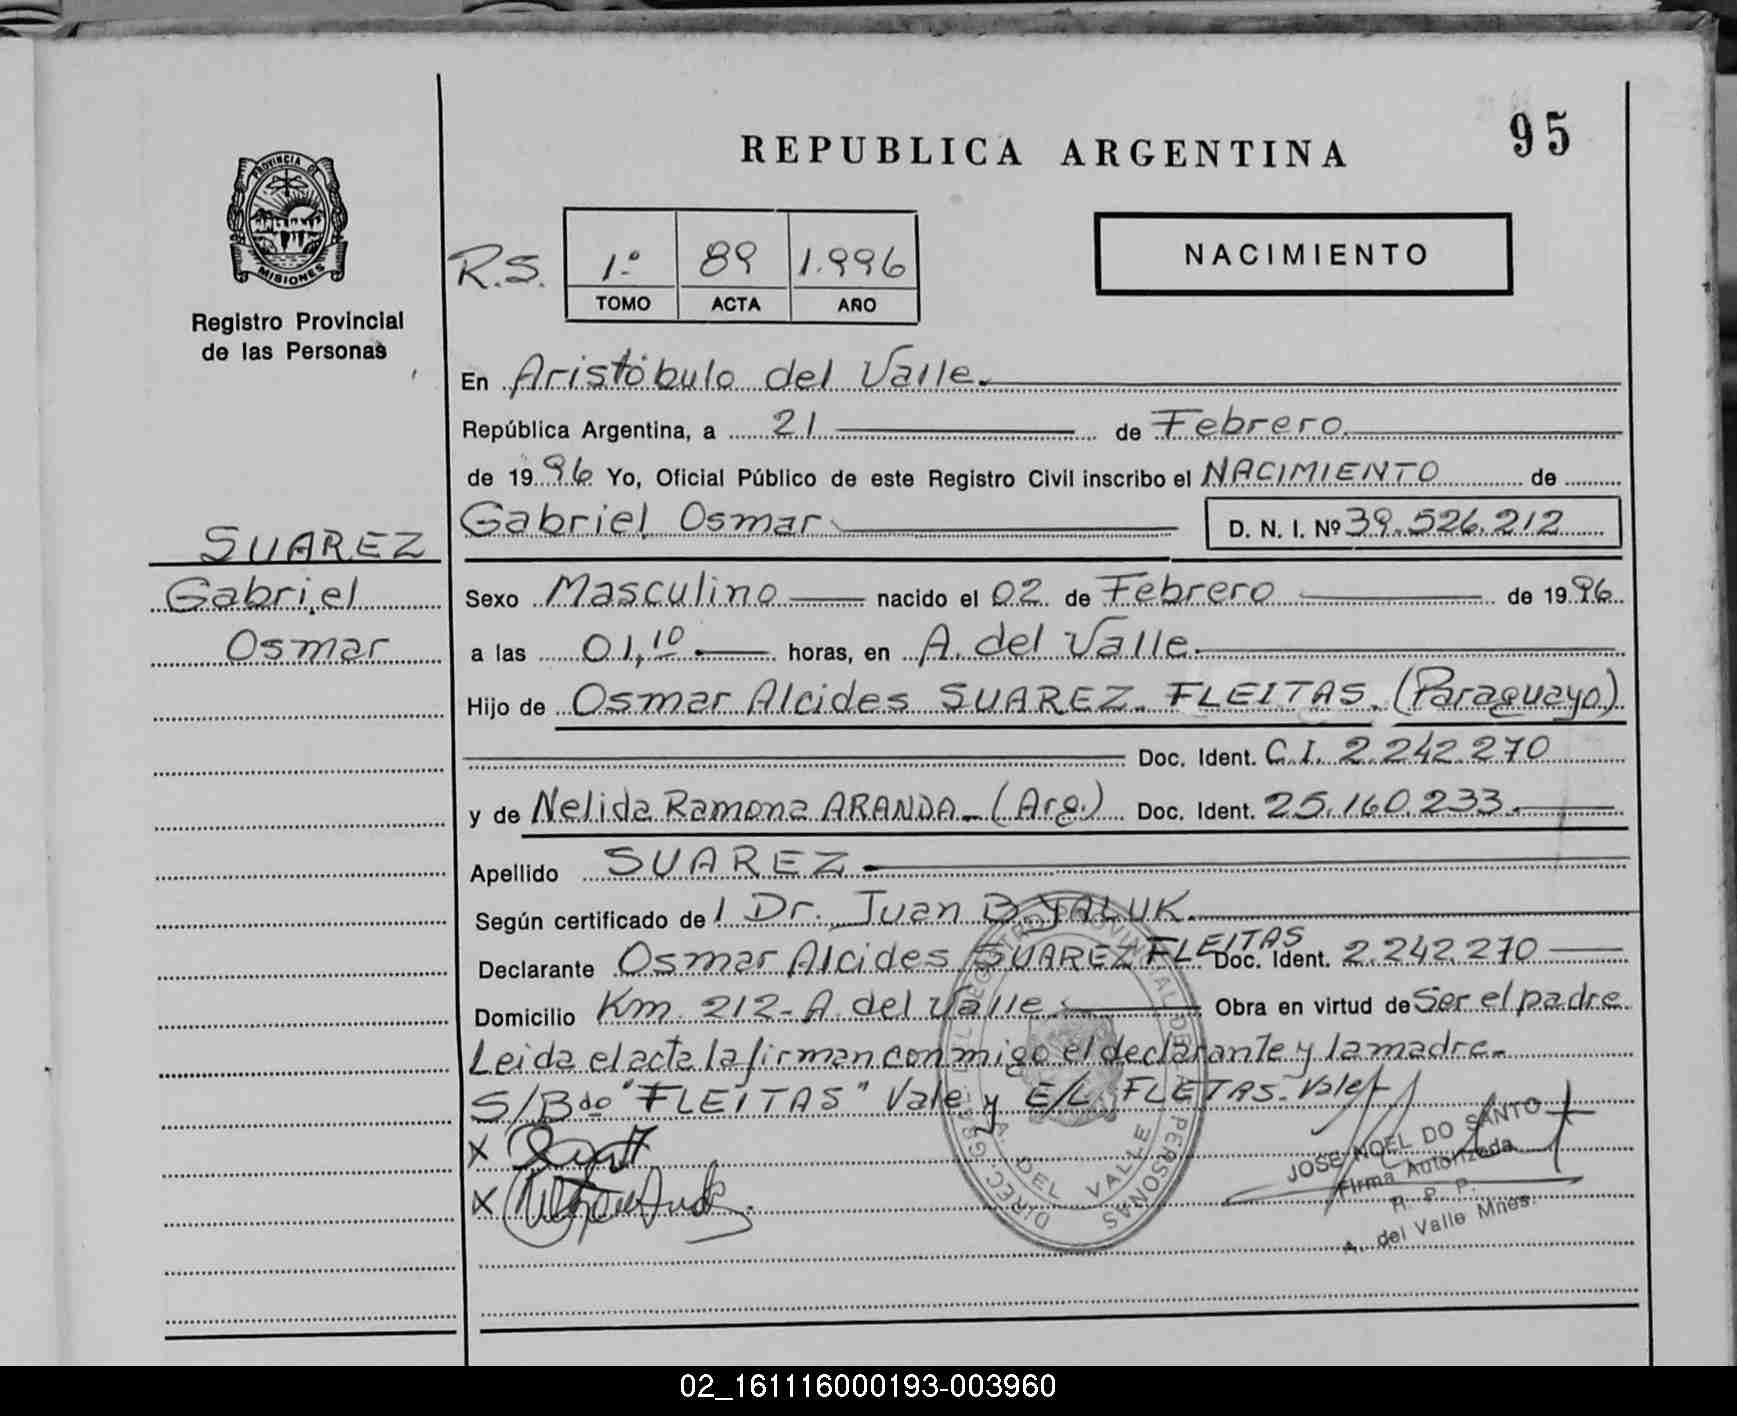 95
REPUBLICA ARGENTINA
PROVINCIA DE
MISIONES
Registro Provincial
de las Personas
NACIMIENTO
R.S. 1º 89 1.996
TOMO ACTA AÑO
En Aristóbulo del Valle.
República Argentina, a 21 de Febrero
de 1996 Yo, Oficial Público de este Registro Civil inscribo el NACIMIENTO de
Gabriel Osmar D. N. I. Nº 39.526.212
SUAREZ
Gabriel
Osmar
Sexo Masculino nacido el 02 de Febrero de 1996
a las 01,10 horas, en A. del Valle
Hijo de Osmar Alcides SUAREZ FLEITAS. (Paraguayo)
Doc. Ident. C.I. 2.242.270
y de Nelida Ramona ARANDA - (Arg.) Doc. Ident. 25.160.233.
Apellido SUAREZ
Según certificado de l Dr. Juan B. YALUK.
Declarante Osmar Alcides SUAREZ FLEITAS Doc. Ident. 2.242.270
Domicilio Km 212 - A. del Valle Obra en virtud de Ser el padre
Leida el acta la firman conmigo el declarante y la madre.
S/Bdo "FLEITAS" Vale y E/L FLETAS. Vale
X
X
JOSE NOEL DO SANTO
Firma Autorizada
R. P. P.
A. del Valle Mnes.
A. DEL VALLE
02_161116000193-003960